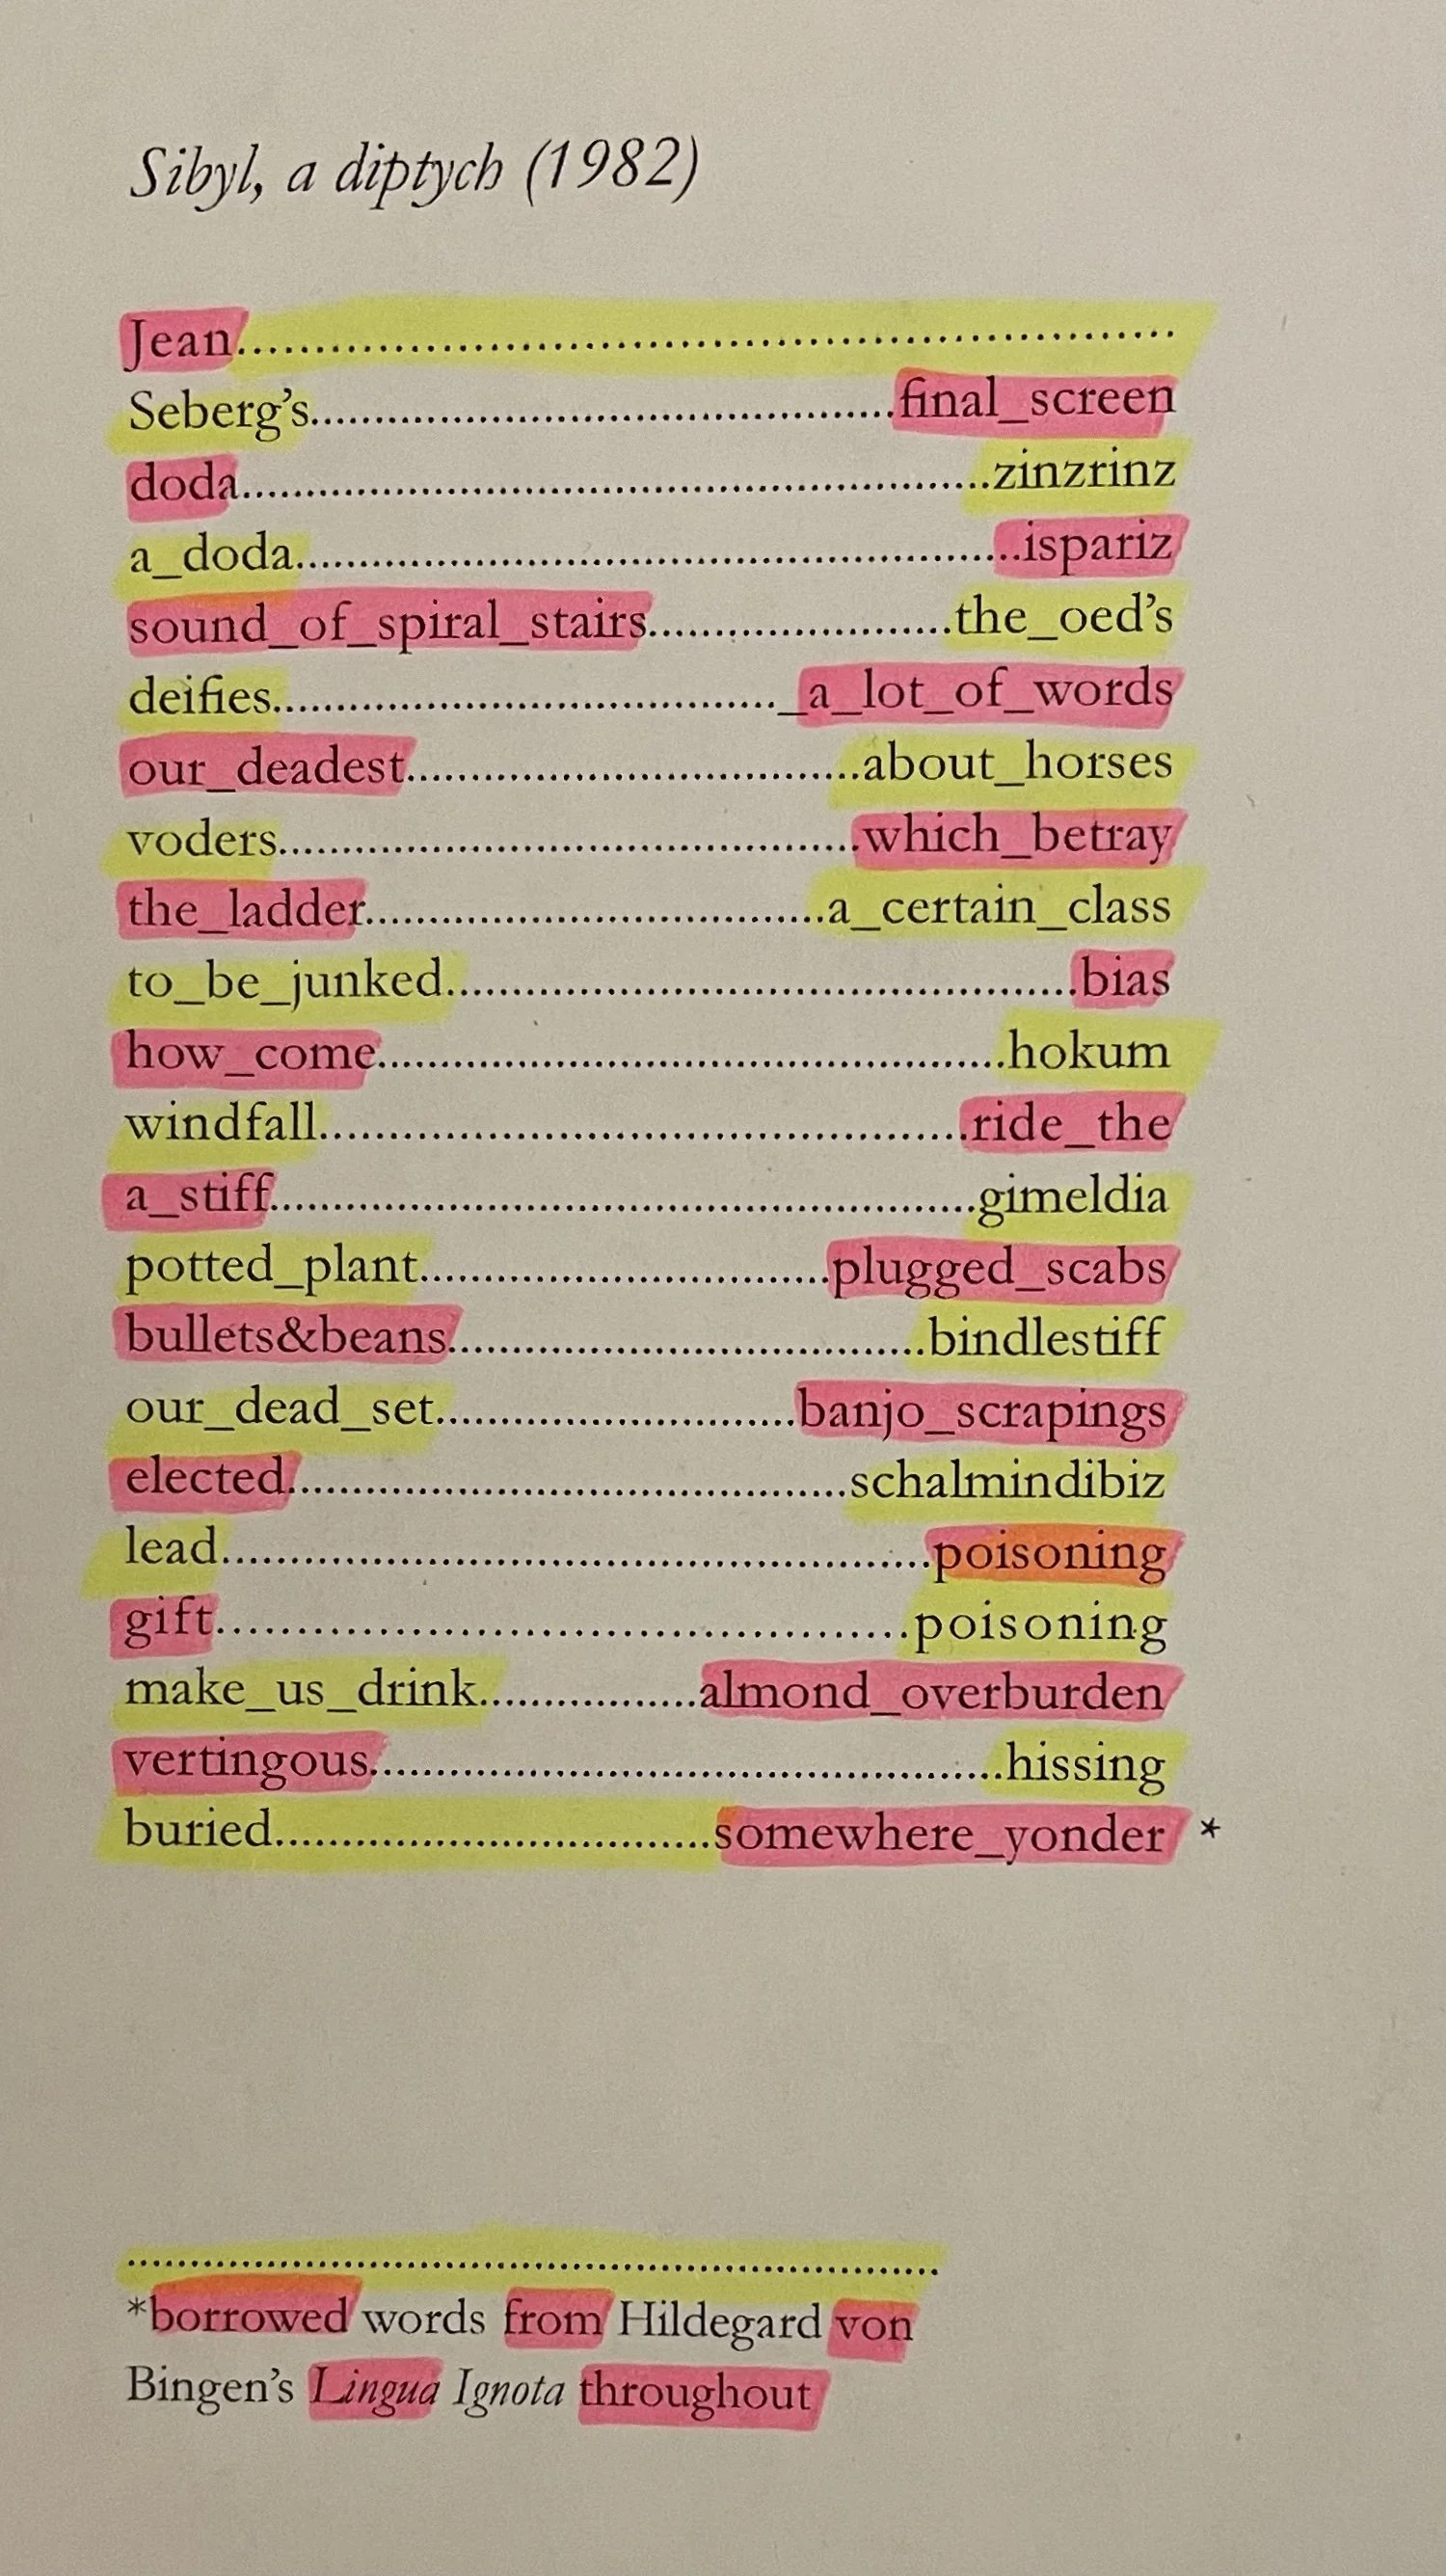 Sibyl, a diptych (1982)
Jean............................................................
Seberg's.............................................final_screen
doda.........................................................zinzrinz
a_doda......................................................ispariz
sound_of_spiral_stairs.......................the_oed's
deifies......................................._a_lot_of_words
our_deadest...................................about_horses
voders.............................................which_betray
the_ladder...................................a_certain_class
to_be_junked................................................bias
how_come................................................hokum
windfall..................................................ride_the
a_stiff......................................................gimeldia
potted_plant................................plugged_scabs
bullets&beans.....................................bindlestiff
our_dead_set............................banjo_scrapings
elected...........................................schalmindibiz
lead.......................................................poisoning
gift............................................poisoning
make_us_drink.................almond_overburden
vertingous.................................................hissing
buried..................................somewhere_yonder *
............................................................
*borrowed words from Hildegard von
Bingen's Lingua Ignota throughout